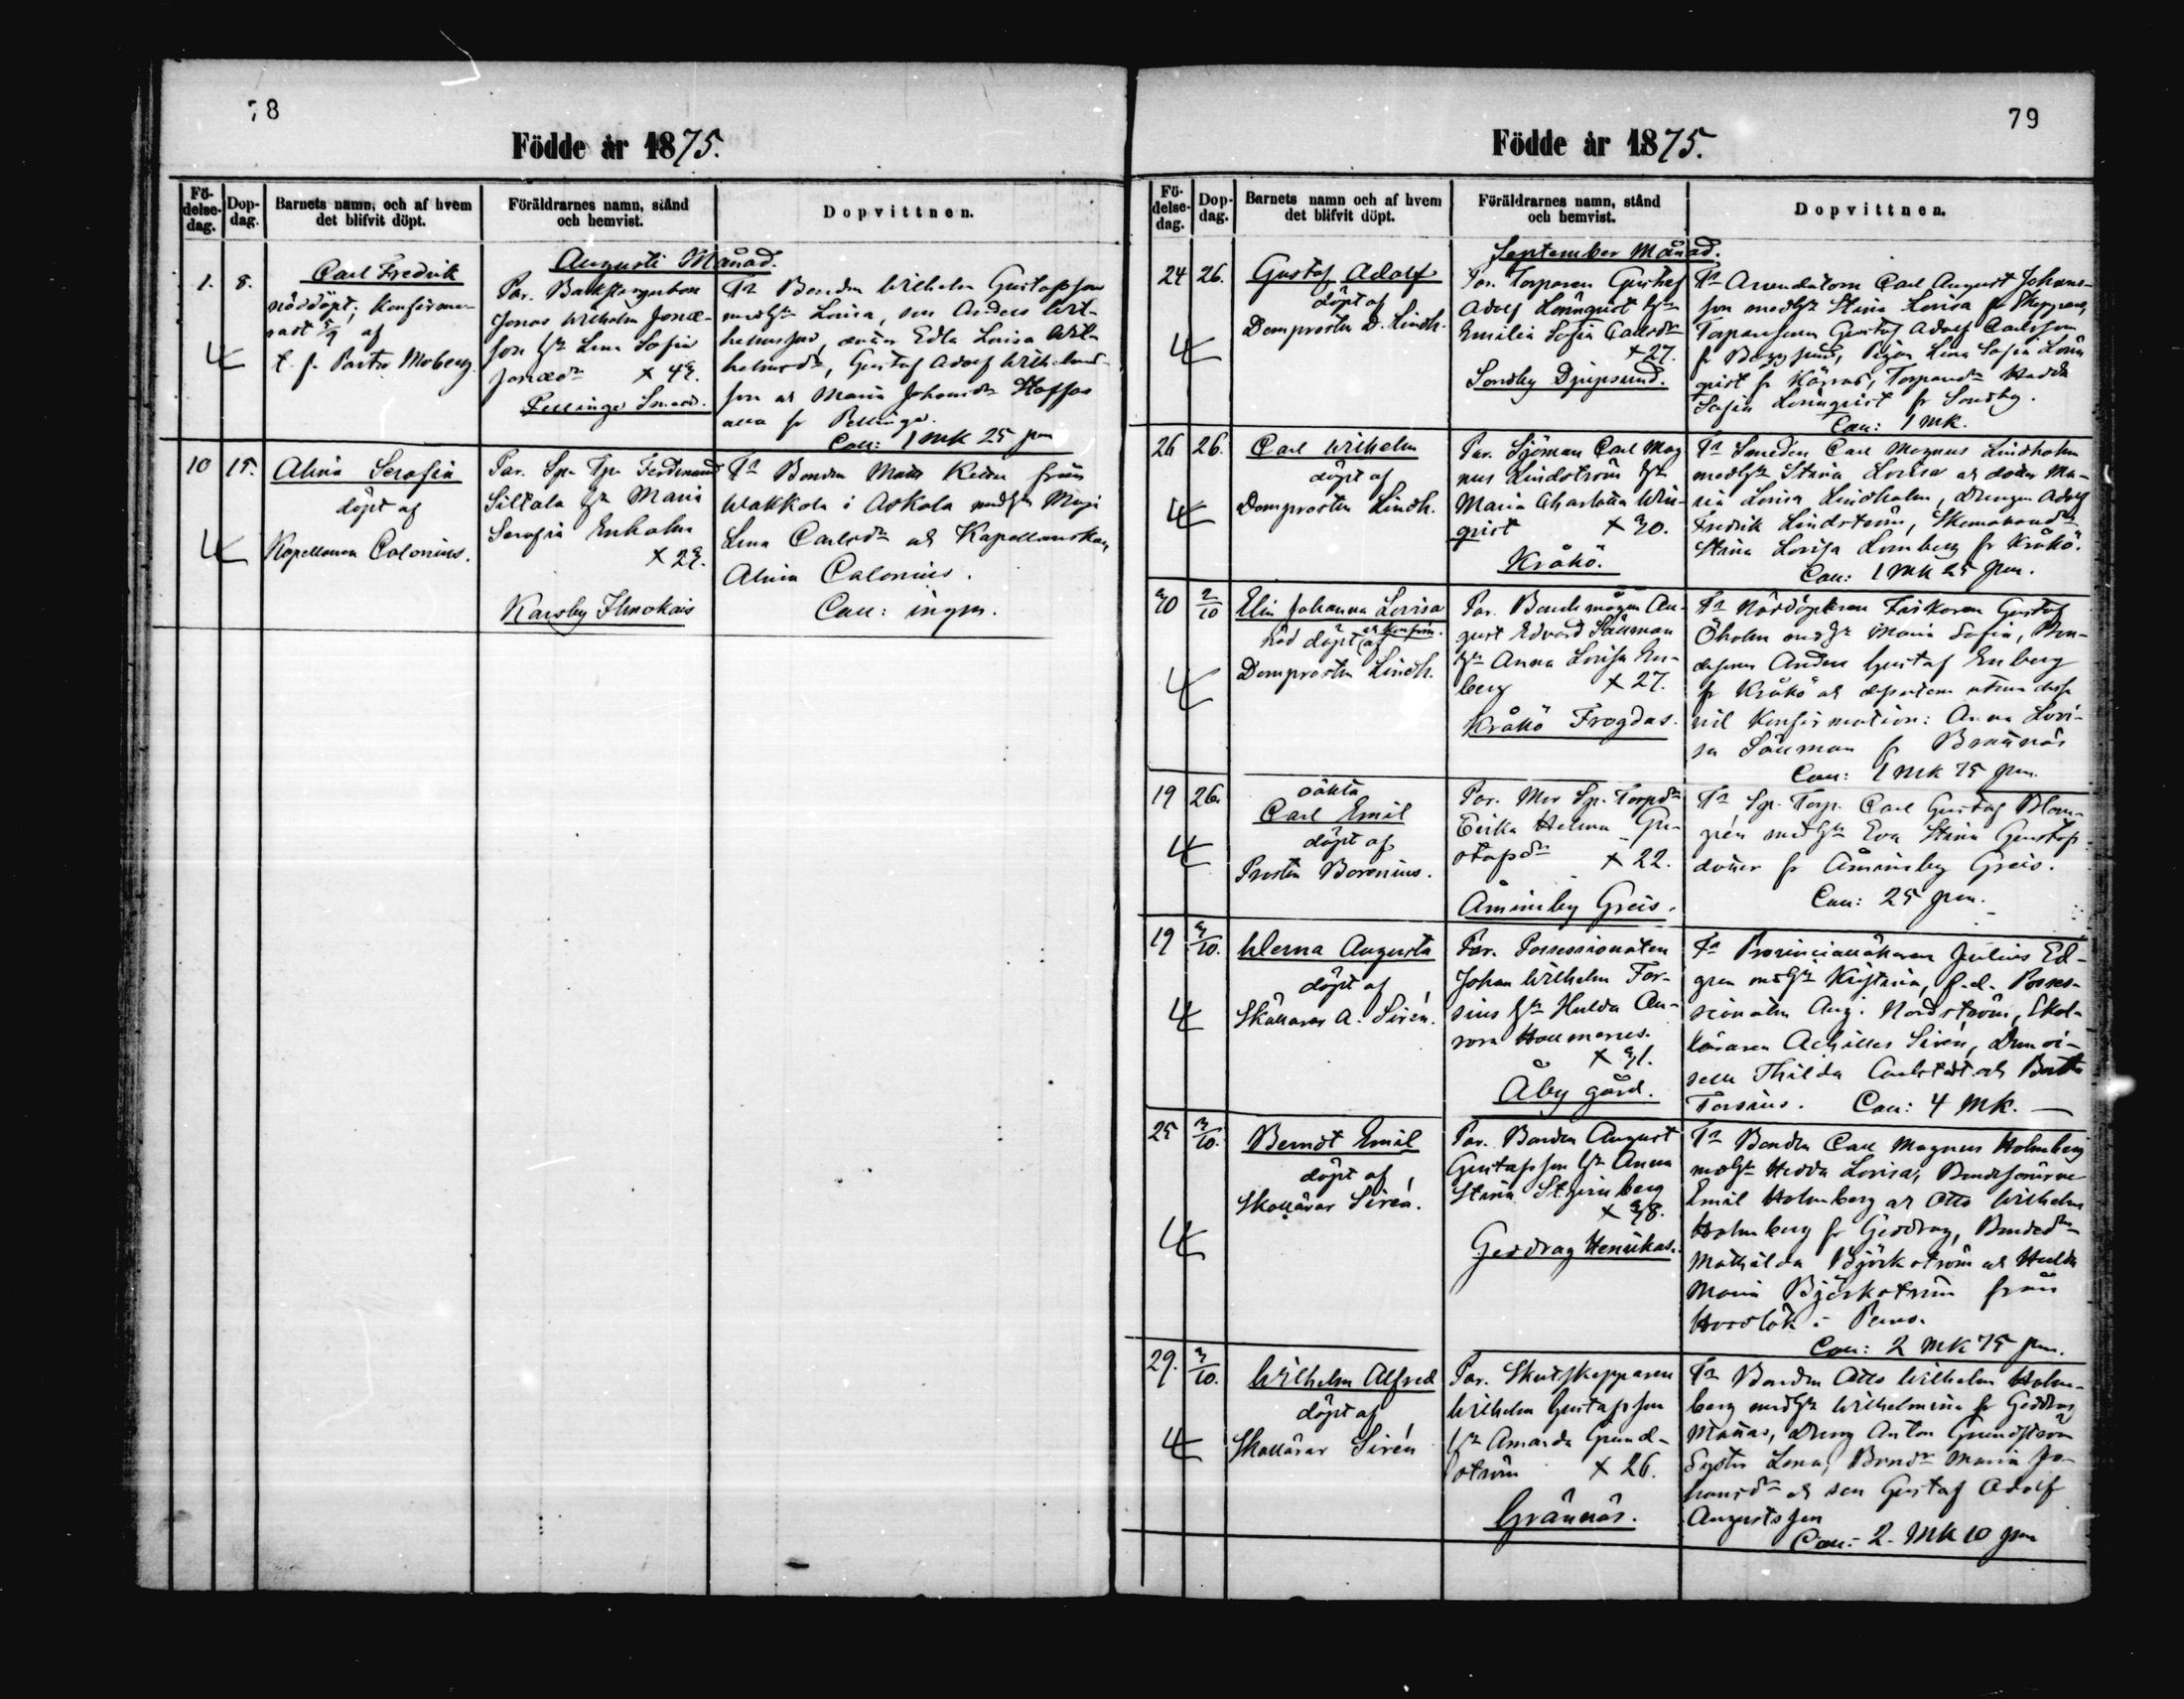 78
Födde år 1875.
Fö-
delse-
dag.
Dop-
dag.
Barnets namn, och af hvem
det blifvit döpt.
Föräldrarnes namn, stånd
och hemvist.
Dopvittnen.
Augusti Månad.
1. 8.
Carl Fredrik
nöddöpt; Konfirme-
rast 5/9 af
t. f. Pastor Moberg.
Par. Backstugubon
Jonas Wilhelm Jonæ-
son hu Lena Sofia
Jonædr x 43.
Pellinge
Ts Bonden Wilhelm Gustafsson
med hu Lovisa, son Anders Wil-
helmsson, Edla Lovisa Wil-
helmsdr, Gustaf Adolf Wilhelms-
son och Maria Johansdr Staffas
alla fr Pellinge.
Coll: 1 mk 25 pn
10 15.
Alina Serafia
döpt af
Kapellanen Calonius.
Par. Sp. Tp. Ferdinand
Siltala hu Maria
Serafia Enholm
x 23.
Karsby Ilmokais
Ts Bonden Matts från
Wakkola i Askola med hu Maja
Lena Carlsdr och Kapellanskan
Alina Calonius.
Coll: ingen.
79
Födde år 1875.
Fö-
delse-
dag.
Dop-
dag.
Barnets namn och af hvem
det blifvit döpt.
Föräldrarnes namn, stånd
och hemvist.
Dopvittnen.
September Månad.
24 26.
Gustaf Adolf
döpt af
Domprosten D. Lindh.
Par. Torparen Gustaf
Adolf Lönnqvist hu
Emilia Sofia Carlsdr
x 27.
Sondby Djupsund.
Ts Arendatorn Carl August Johans-
son med hu Stina Lovisa fr
Torparesonen Gustaf Adolf Carlsson
fr Pigan Lena Sofia Lönn
qvist fr Kärras, Torparedr Hedda
Sofia Lönnqvist fr Sondby.
Coll: 1 mk.
26 26.
Carl Wilhelm
döpt af
Domprosten Lindh.
Par. Sjöman Carl Mag
nus Lindström hu
Maria Charlotta Win-
qvist x 30.
Kråkö.
Ts Smeden Carl Magnus Lindholm
med hu Stina Lovisa och dotter Ma-
ria Lovisa Lindholm, drengen Adolf
Fredrik Lindström,
Stina Lovisa Lönnberg fr Kråkö.
Coll: 1 mk 25 pn.
30 2/10
Elin Johanna Lovisa
nöd döpt och konfirm. af
Domprosten Lindh.
Par. Bondemågen Au-
gust Edvard Sällman
hu Anna Lovisa En-
berg x 27.
Kråkö Frogdas.
Ts Nöddöparen Fiskaren Gustaf
Öholm med hu Maria Sofia, Bon-
desonen Anders Gustaf Enberg
fr Kråkö och dessutom utom desse
vid Konfirmation: Anna Lovi-
sa Sällman fr Brännäs
Coll: 1 mk 75 pn.
19 26.
oäkta
Carl Emil
döpt af
Prosten Borenius.
Par. Mor Sp. Torpdr
Erika Helena Gu-
stafsdr x 22.
Åminsby Greis.
Ts Sp. Torp. Carl Gustaf Blom-
grén med hu Eva Stina Gustafs
dotter fr Åminsby Greis.
Coll: 25 pn.
19 3/10.
Werna Augusta
döpt af
Skollärar A. Sirén.
Par. Possessionaten
Johan Wilhelm For-
sius hu Hulda Au-
rora Hollmerus.
x 31.
Åby gård.
Ts Provincialläkaren Julius Ed-
gren med hu Kristina, f.d. Posses-
sionaten Aug. Nordström, Skol-
läraren Achilles Sirén, Demoi-
selle Thilda Carlstedt och Berta
Forsius. Coll: 4 mk.
25 3/10.
Berndt Emil
döpt af
Skollärar Sirén.
Par. Bonden August
Gustafsson hu Anna
Stina Stjernberg
x 38.
Geddrag Henrikas.
Ts Bonden Carl Magnus Holmberg
med hu Hedda Lovisa, Bondesönerne
Emil Holmberg och Otto Wilhelm
Holmberg fr Geddrag, Bondedr
Mathilda Björkström och Hulda
Maria Björkström från
i Perno.
Coll: 2 mk 75 pn.
29. 3/10.
Wilhelm Alfred
döpt af
Skollärar Sirén
Par. Skutskepparen
Wilhelm Gustafsson
hu Amanda Grund-
ström x 26.
Grännäs.
Ts Bonden Otto Wilhelm Holm-
berg med hu Wilhelmina fr Geddrag
dreng Anton Grundström
Syster Lena, Bondr Maria Jo-
hansdr och son Gustaf Adolf
Augustsson
Coll: 2 mk 10 pn